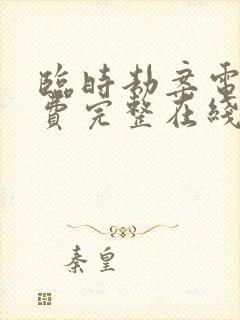 臨時劫案電
費完整在綫
秦皇